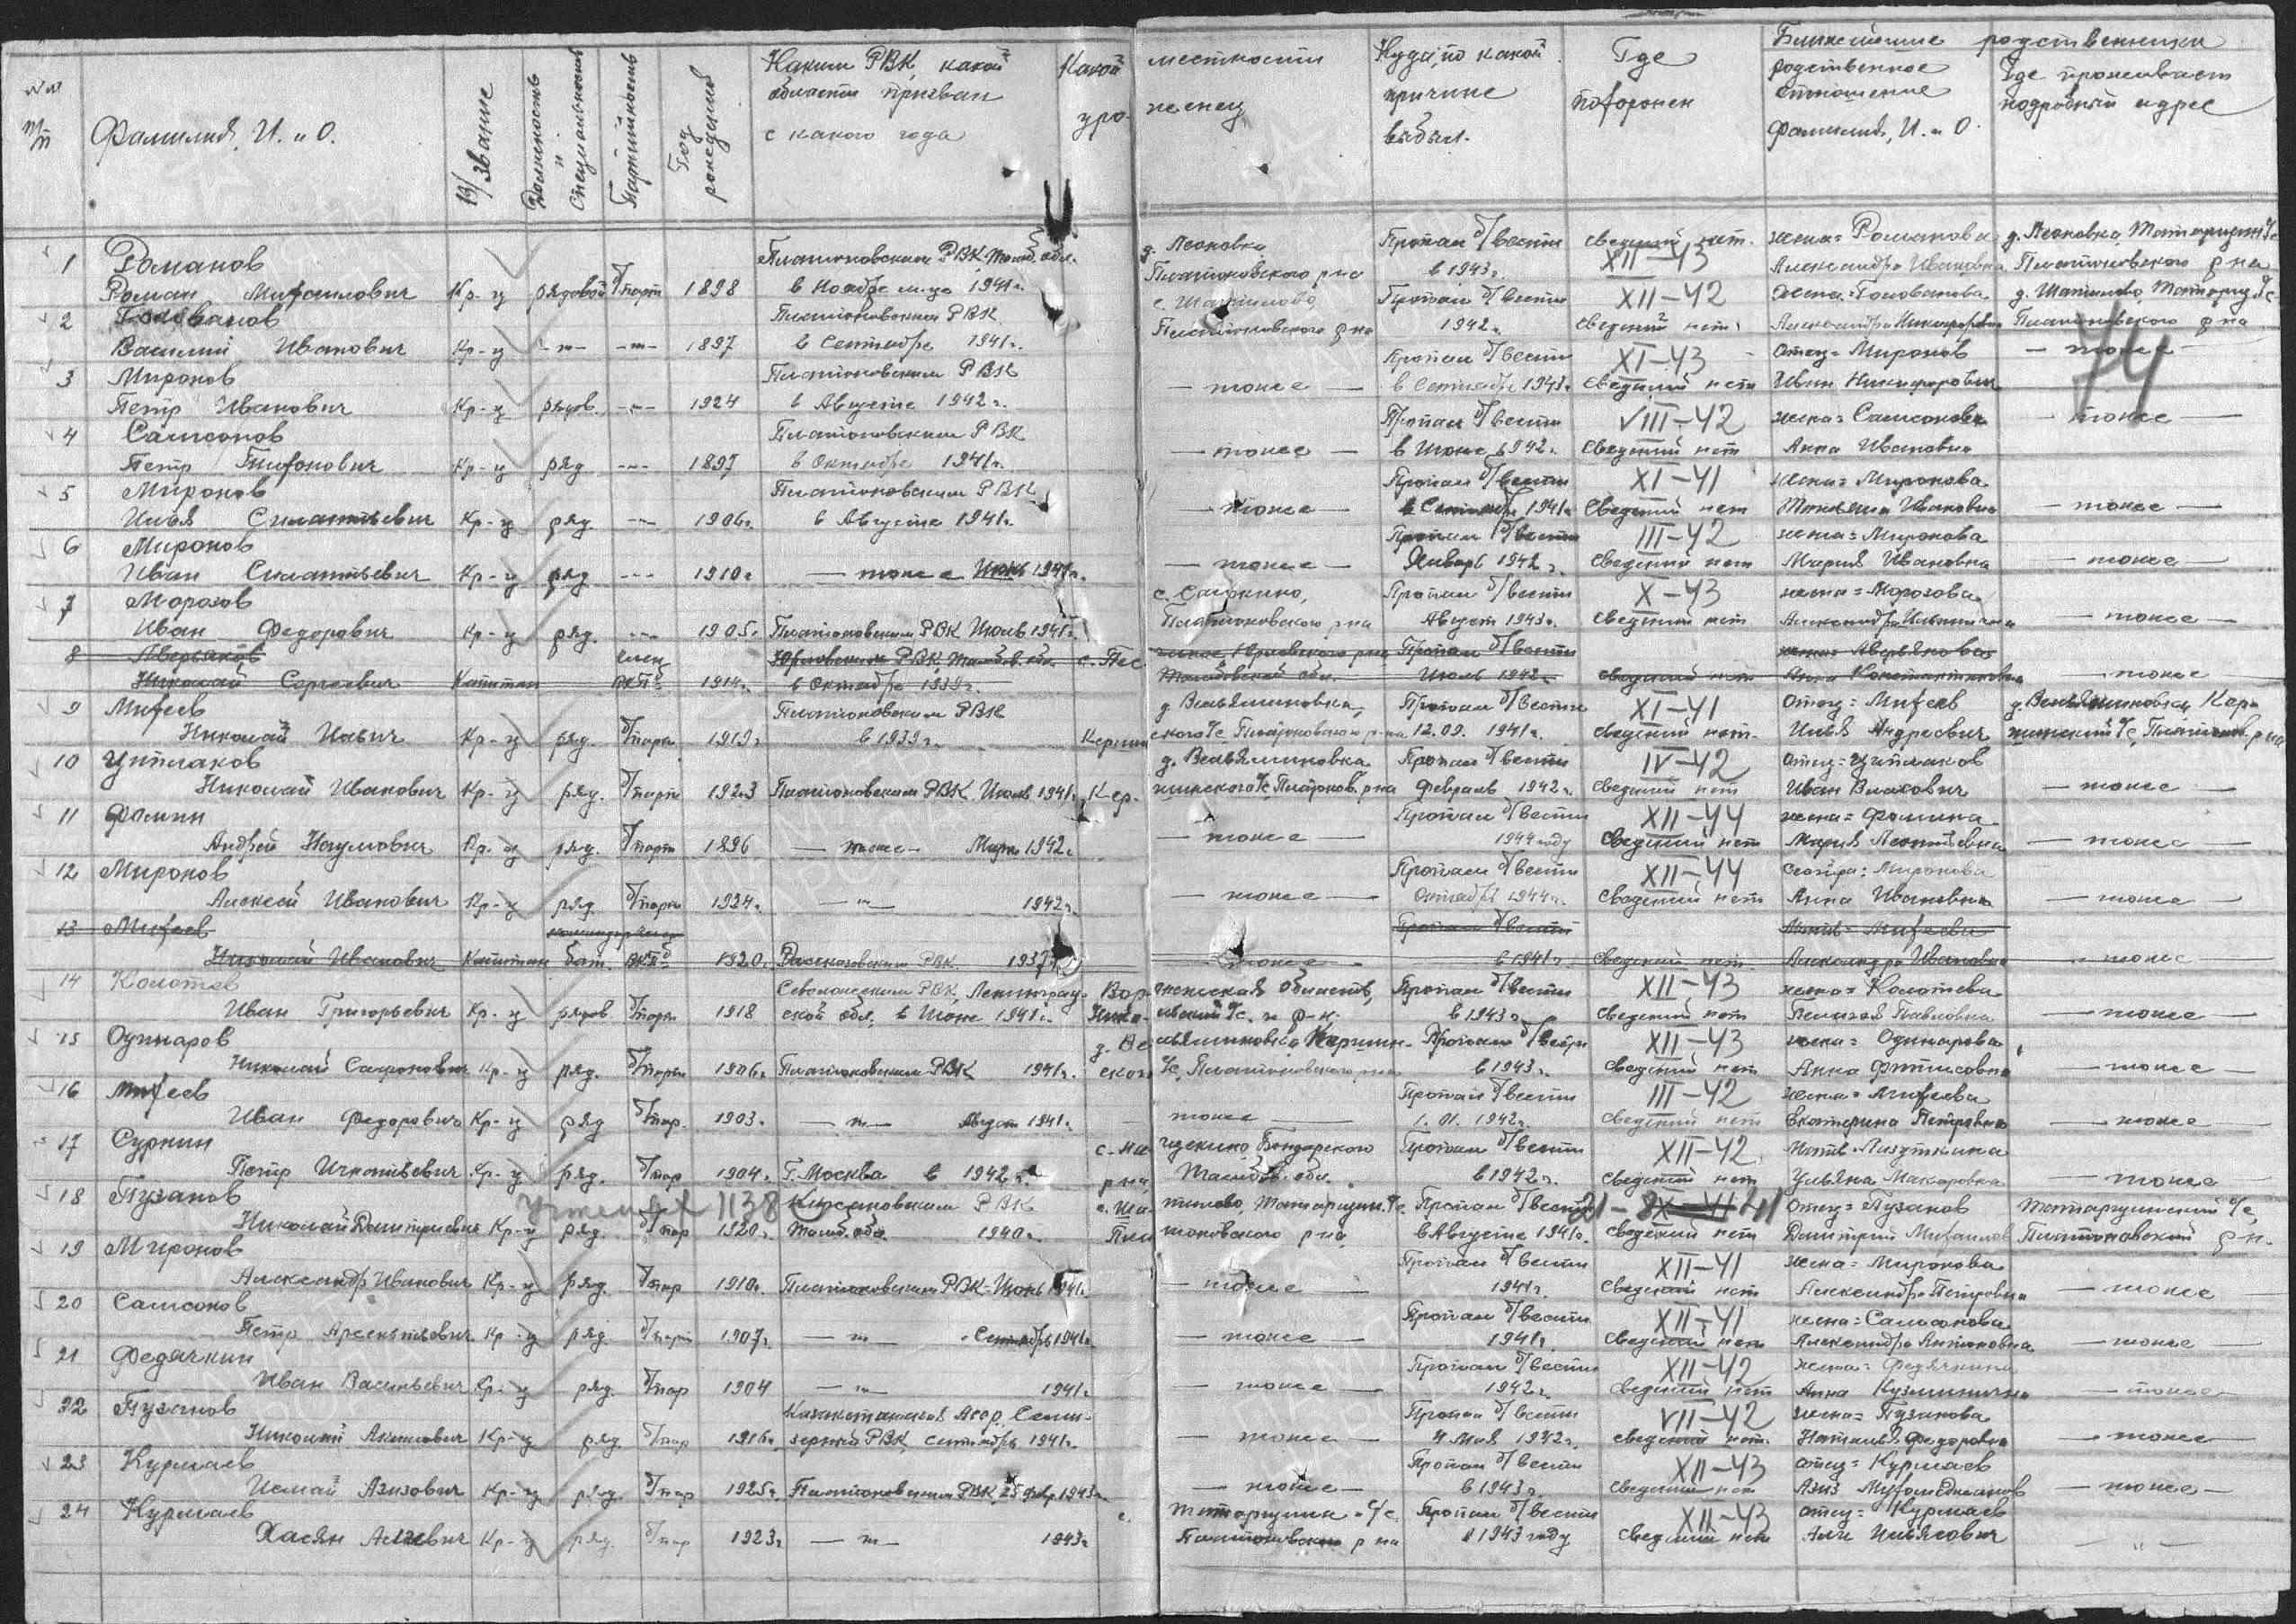 №№ п/п
Фамилия, И. и О.
в/звание
Должность и специальность
Партийность
Год рождения
Каким РВК, какой области призван с какого года
Какой местности уроженец
Куда, по какой причине выбыл.
Где похоронен
Ближайшие родственники
родственное отношение Фамилия, И. и О.
Где проживает подробный адрес
74
1 Романов Пլатоновским РВК Тамб. обл. д. Леоновка Пропал б/вести сведений нет. жена = Романова
Роман Михайлович Кр-ц рядовой б/парт 1898 в Ноябре м-це 1941г. Платоновского р-на в 1943г. XII-43 Александра Ивановна Платоновского р-на
2 Голованов Платоновским РВК с. Шапилово, Пропал б/вести XII-42 жена = Голованова
Василий Иванович Кр-ц -"- -"- 1897 в Сентябре 1941г. Платоновского р-на 1942г. сведений нет Александра Никифоровна Платоновского р-на
3 Миронов Платоновским РВК Пропал б/вести XI-43 отец = Миронов - тоже -
Петр Иванович Кр-ц рядов. -"- 1924 в Августе 1942г. - тоже - в Сентябре 1943г. сведений нет Иван Никифорович
4 Самсонов Платоновским РВК Пропал б/вести VIII-42 жена = Самсонова - тоже -
Петр Тихонович Кр-ц ряд -"- 1897 в Октябре 1941г. - тоже - в Июне 1942г. сведений нет Анна Ивановна
5 Миронов Платоновским РВК Пропал б/вести XI-41 жена = Миронова
Илья Силантьевич Кр-ц ряд -"- 1906г. в Августе 1941г. - тоже - в Сентябре 1941г. Сведений нет Татьяна Ивановна - тоже -
6 Миронов Пропал б/вести III-42 жена = Миронова
Иван Силантьевич Кр-ц ряд -"- 1910г - тоже - Июнь 1941г. - тоже - Январь 1942г. сведений нет Мария Ивановна - тоже -
7 Морозов с. Саюкино, Пропал б/вести X-43 жена = Морозова
Иван Федорович Кр-ц ряд. -"- 1905г. Платоновским РВК Июль 1941г. Платоновского р-на Август 1943г. сведений нет - тоже -
8 Аверьянов член Юрловским РВК Тамбов. обл. Пропал б/вести жена = Аверьянова
Николай Сергеевич Капитан ВКПб 1914г. в Октябре 1939г. Тамбовской обл. Июль 1942г. сведений нет Анна Константиновна - тоже -
9 Михеев Платоновским РВК д. Вельяминовка, Пропал б/вести XI-41 Отец = Михеев д. Вельяминовка, Кер-
Николай Ильич Кр-ц ряд. б/парт 1919г в 1939г. Кершинского с/с Платоновского р-на 12.09.1941г. сведений нет. Илья Андреевич шинский с/с, Платонов. р-на
10 Цыплаков д. Вельяминовка Пропал б/вести IV-42 Отец = Цыплаков
Николай Иванович Кр-ц ряд. б/парт 1923 Платоновским РВК, Июль 1941г. Кершинского с/с Платонов. р-на Февраль 1942г. сведений нет Иван Власович - тоже -
11 Фомин Пропал б/вести XII-44 жена = Фомина
Андрей Наумович Кр-ц ряд. б/парт 1896 - тоже - Март 1942г. - тоже - 1944 году Сведений нет Мария Леонтьевна - тоже -
12 Миронов Пропал б/вести XII-44 сестра: Миронова
Алексей Иванович Кр-ц ряд. б/парт 1924г. -"- 1942г. - тоже - Октябрь 1944г. Сведений нет Анна Ивановна - тоже -
13 Михеев Пропал б/вести Мать = Михеева
Николай Иванович Капитан бат. ВКПб 1920г. Рассказовским РВК 1937г. - тоже - в 1941г. Сведений нет Александра Ивановна - тоже -
14 Колотев РВК, Ленинград- Воронежская область, Пропал б/вести XII-43 жена = Колотева
Иван Григорьевич Кр-ц рядов б/парт 1918 ской обл. в Июне 1941г. с/с. и р-н. в 1943г. Сведений нет Пелагея Павловна - тоже -
15 Одинаров д. Вельяминовка Кершин- Пропал б/вести XII-43 жена = Одинарова
Николай Сафронович Кр-ц ряд. б/парт 1906г. Платоновским РВК 1941г. ского с/с, Платоновского р-на в 1943г. Сведений нет Анна - тоже -
16 Михеев Пропал б/вести III-42 жена = Михеева
Иван Федорович Кр-ц ряд б/пар. 1903г. -"- Август 1941г. - тоже - 1.01.1942г. сведений нет Екатерина Петровна - тоже -
17 Суркин Бондарского Пропал б/вести XII-42 Мать
Петр Игнатьевич Кр-ц ряд. б/пар 1904г. Г. Москва в 1942г. р-на, Тамбов. обл. в 1942г. сведений нет Ульяна Макаровна - тоже -
18 Пузанов 1138 Кирсановским РВК с. Шапилово, Татарщин. с/с. Пропал б/вести Отец = Пузанов Татарщинский с/с,
Николай Дмитриевич Кр-ц ряд. б/пар 1920г. Тамб. обл. 1940г. Платоновского р-на, в Августе 1941г. Сведений нет Дмитрий Михайлов Платоновский р-н.
19 Миронов Пропал б/вести XII-41 жена = Миронова
Александр Иванович Кр-ц ряд. б/пар 1910г. Платоновским РВК - Июнь 1941г. - тоже - 1941г. Сведений нет Александра Петровна - тоже -
20 Самсонов Пропал б/вести XII-41 жена = Самсонова
Петр Арсентьевич Кр-ц ряд б/парт 1907г. -"- Сентябрь 1941г. - тоже - 1941г. сведений нет Александра Антоновна - тоже -
21 Федячкин Пропал б/вести XII-42 жена = Федячкина
Иван Васильевич Кр-ц ряд. б/пар 1904 -"- 1941г - тоже - 1942г. Сведений нет Анна Кузминична - тоже -
22 Пузанов Казахстанская Пропал б/вести VII-42 жена = Пузанова
Николай Акимович Кр-ц ряд. б/пар 1916г. РВК, сентябрь 1941г. - тоже - 4 Мая 1942г. сведений нет. Наталья Федоровна - тоже -
23 Курмаев Пропал б/вести XII-43 отец = Курмаев
Исмай Азизович Кр-ц ряд. б/пар 1925г. Платоновским РВК, 25 февр 1943г. - тоже - в 1943г. сведений нет Азиз - тоже -
24 Курмаев с. Татарщина с/с. Пропал б/вести XII-43 отец = Курмаев
Хасян Алиевич Кр-ц ряд. б/пар 1923г. -"- 1943г Платоновского р-на в 1943 году Сведений нет Али Ильясович -"-